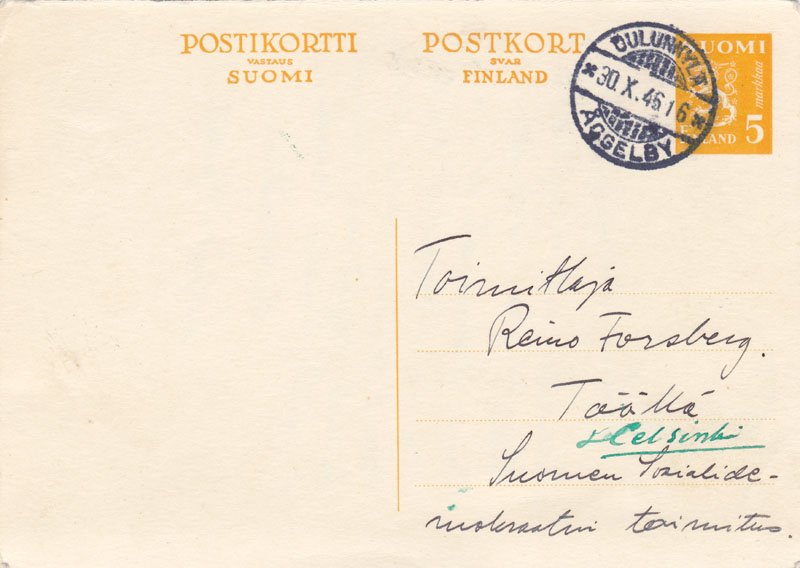 POSTIKORTTI
VASTAUS
SUOMI
POSTKORT
SVAR
FINLAND
OULUNKYLÄ
* 30.X.46.16 *
ÅGGELBY
SUOMI
markkaa
FINLAND 5
Toimittaja
Reino Forsberg.
Täältä
Helsinki
Suomen Sosialide-
mokraatin toimitus.